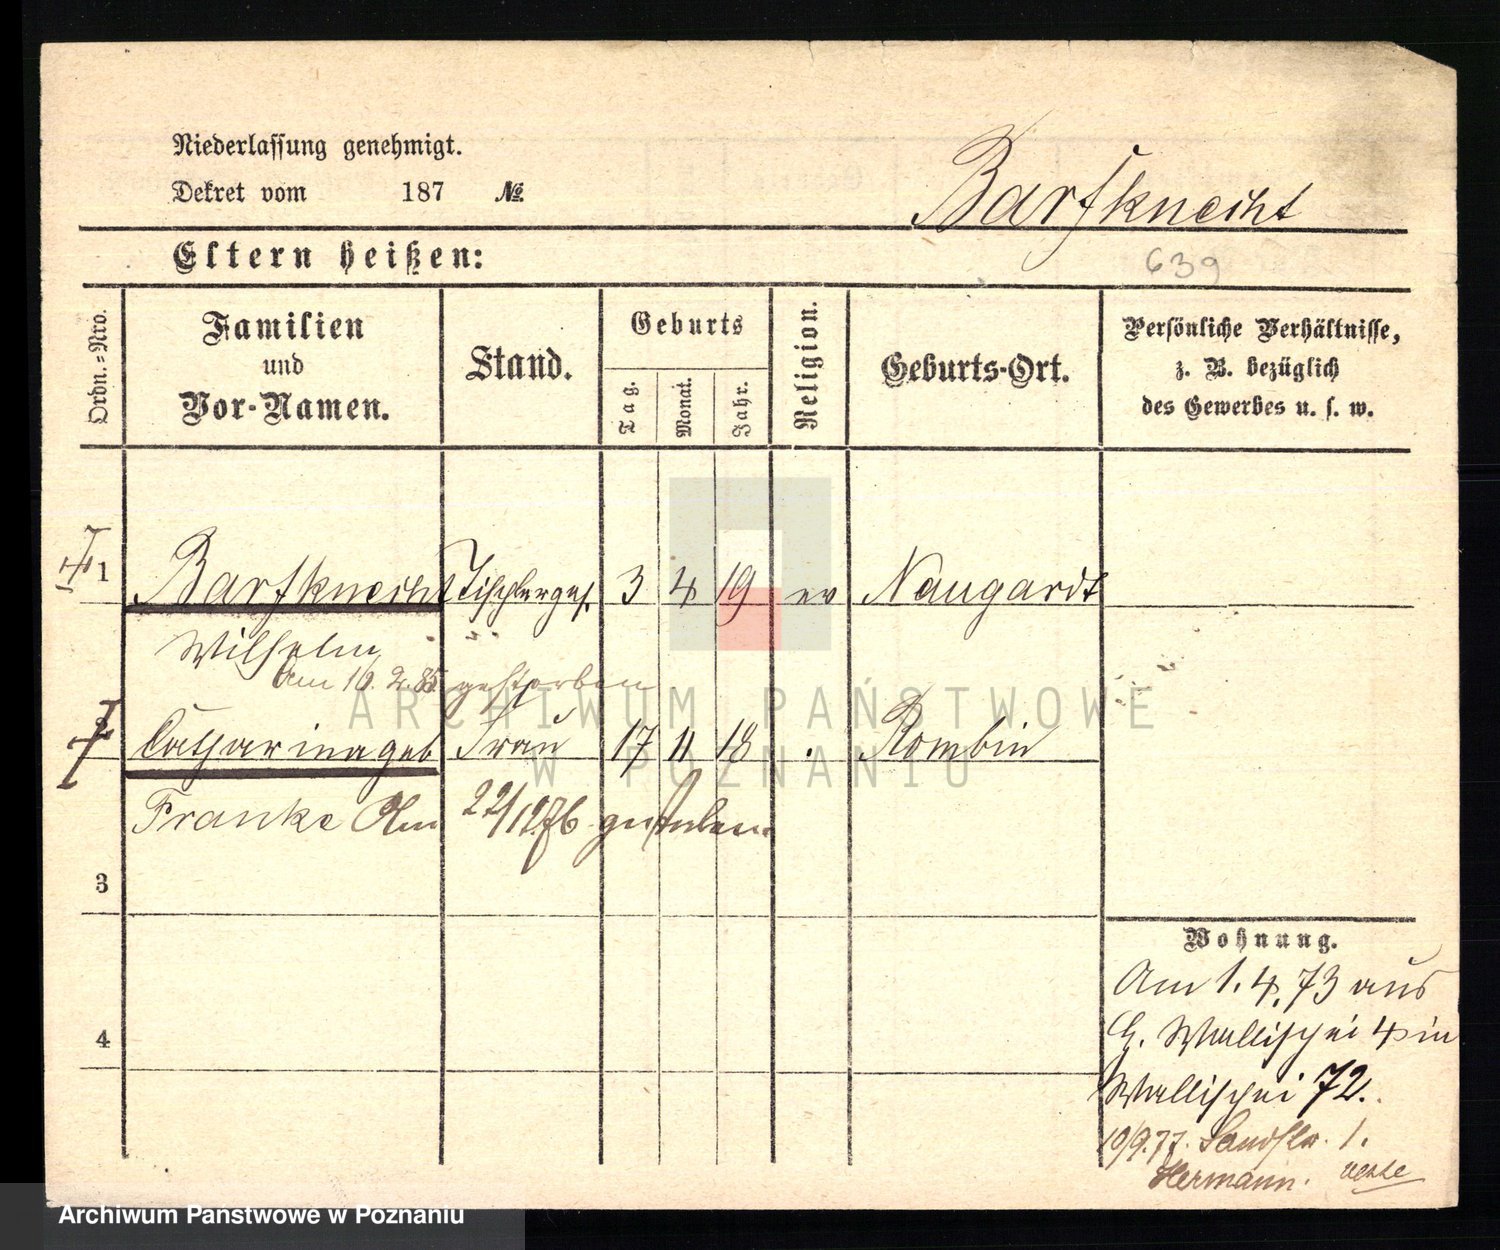 Niederlassung genehmigt.
Dekret vom 187 №
Barfknecht
Eltern heißen:
639
Ordn.=Nro.
Familien
und
Vor-Namen.
Stand.
Geburts
Tag.
Monat.
Jahr.
Religion.
Geburts-Ort.
Persönliche Verhältnisse,
z. B. bezüglich
des Gewerbes u. s. w.
1 Barfknecht Tischlerges. 3 4 19 ev Naugardt
Wilhelm
Am 16. 2. 85 gestorben
2 Catharina geb Frau 17 11 18 . Rombin
Franke Am 22/12 76 gestorben.
3
4
Wohnung.
Am 1. 4. 73 aus
H. Wallischei 4 in
Wallischei 72.
10/9.77. Sandstr. 1.
Hermann.
ARCHIWUM PAŃSTWOWE
W POZNANIU
Archiwum Państwowe w Poznaniu